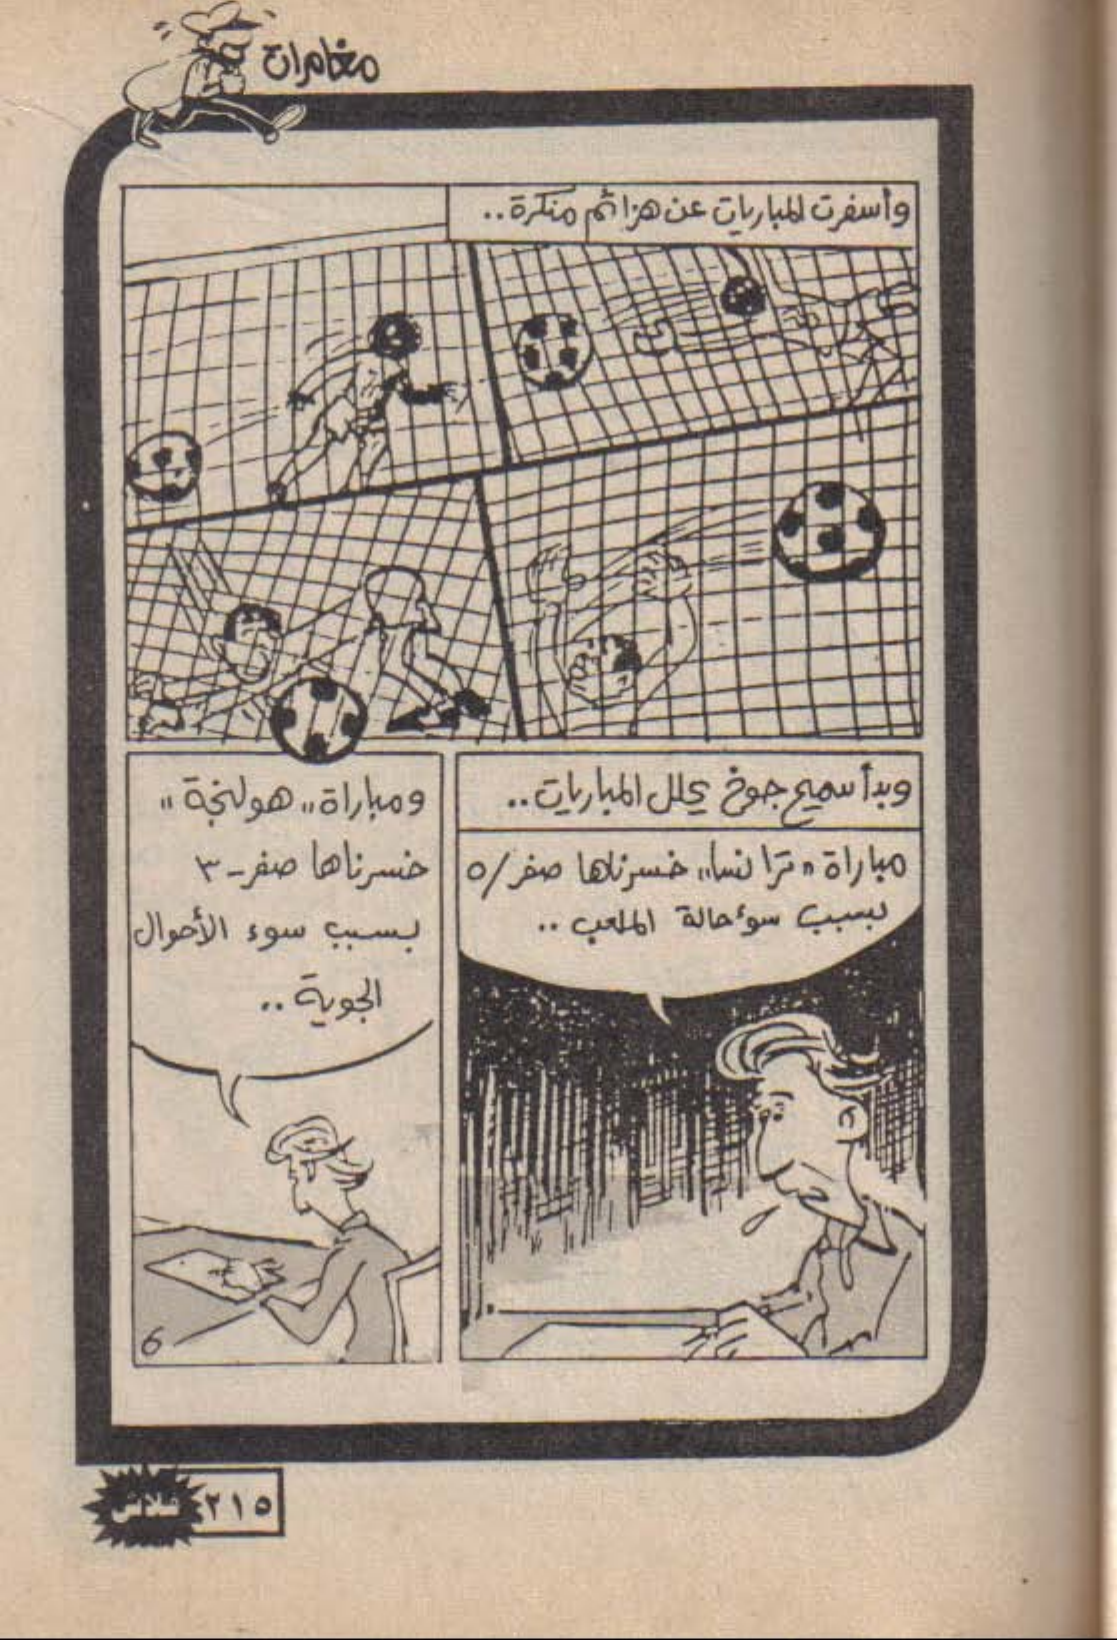 مغامرات
وأسفرت المباريات عن هزائم منكرة..
وبدأ سميح جوخ يحلل المباريات..
مباراة "ترانسا" خسرناها صفر/٥
بسبب سوء حالة الملعب ..
ومباراة "هولنجة"
خسرناها صفر - ٣
بسبب سوء الأحوال
الجوية ..
6
٢١٥
فلاش